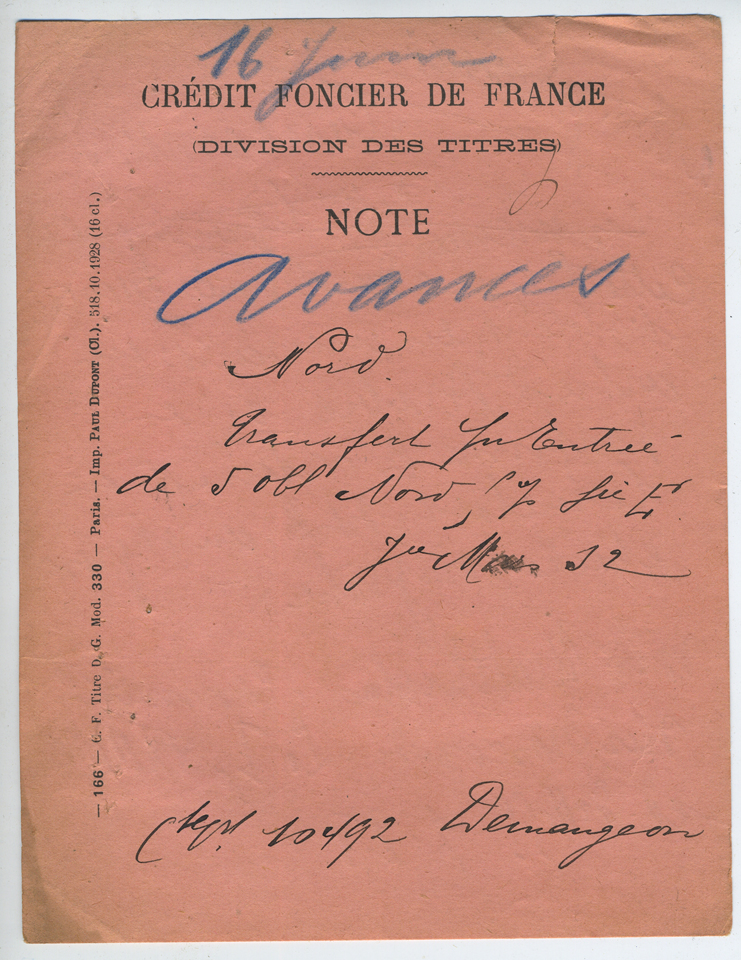 16 Juin
CRÉDIT FONCIER DE FRANCE
(DIVISION DES TITRES)
NOTE
Avances
Nord.
Transfert Entrée
de 5 obl Nord, Sie
Mars 32
10492 Demangeon
— 166 — C. F. Titre D. G. Mod. 330 — Paris. — Imp. PAUL DUPONT (Cl.). 518.10.1928 (16 cl.)